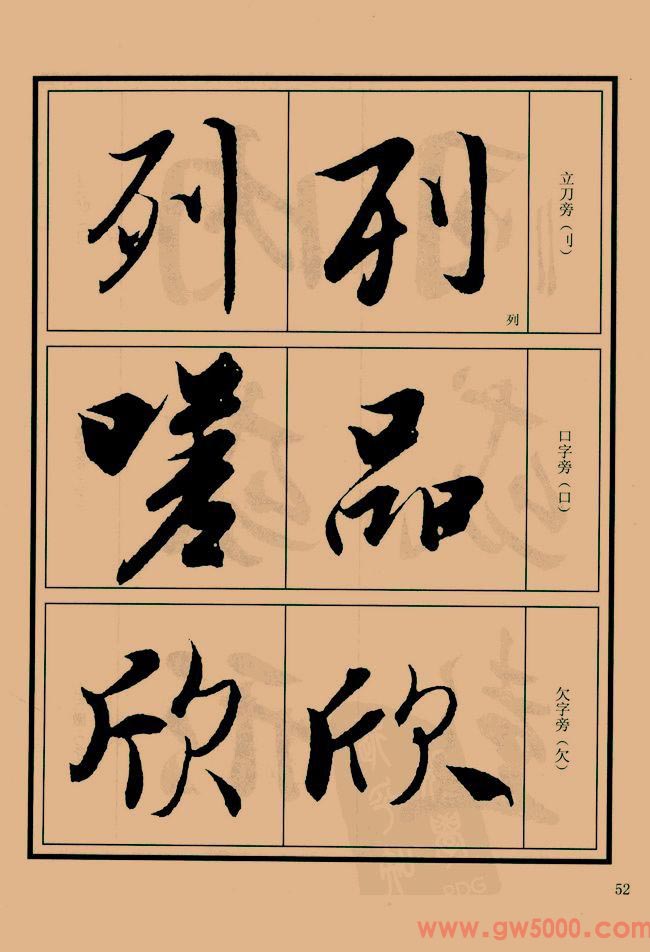 立刀旁（刂）
列
列
列
口字旁（口）
品
嗟
欠字旁（欠）
欣
欣
52
www.gw5000.com